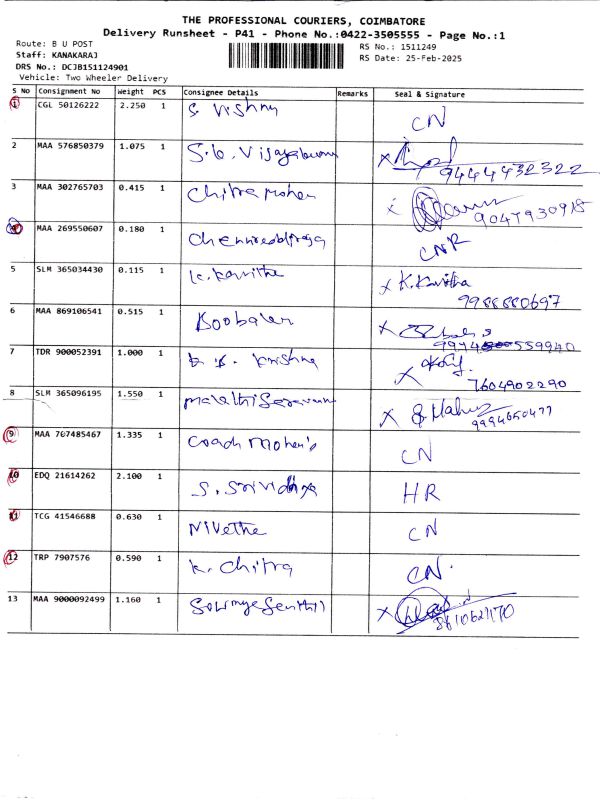 THE PROFESSIONAL COURIERS, COIMBATORE
Delivery Runsheet - P41 - Phone No.:0422-3505555 - Page No.:1
Route: B U POST
RS No.: 1511249
Staff: KANAKARAJ
RS Date: 25-Feb-2025
DRS No.: DCJB151124901
Vehicle: Two Wheeler Delivery
S No Consignment No Weight PCS Consignee Details Remarks Seal & Signature
1 CGL 50126222 2.250 1 S. Vishnu CN
2 MAA 576850379 1.075 1 S.b. 9444432322
3 MAA 302765703 0.415 1 Chitra Mohan 9047930918
4 MAA 269550607 0.180 1 CNR
5 SLM 365034430 0.115 1 K. Kavitha K. Kavitha
9988880697
6 MAA 869106541 0.515 1 Boobalan
7 TDR 900052391 1.000 1 Krishna
7604902290
8 SLM 365096195 1.550 1 Malathi Saravanan
9994650477
9 MAA 707485467 1.335 1 Coach Mohan's CN
10 EDQ 21614262 2.100 1 S. Srividhya HR
11 TCG 41546688 0.630 1 Nivetha CN
12 TRP 7907576 0.590 1 K. Chitra CN.
13 MAA 9000092499 1.160 1 Sowmya Senthil
8610621170